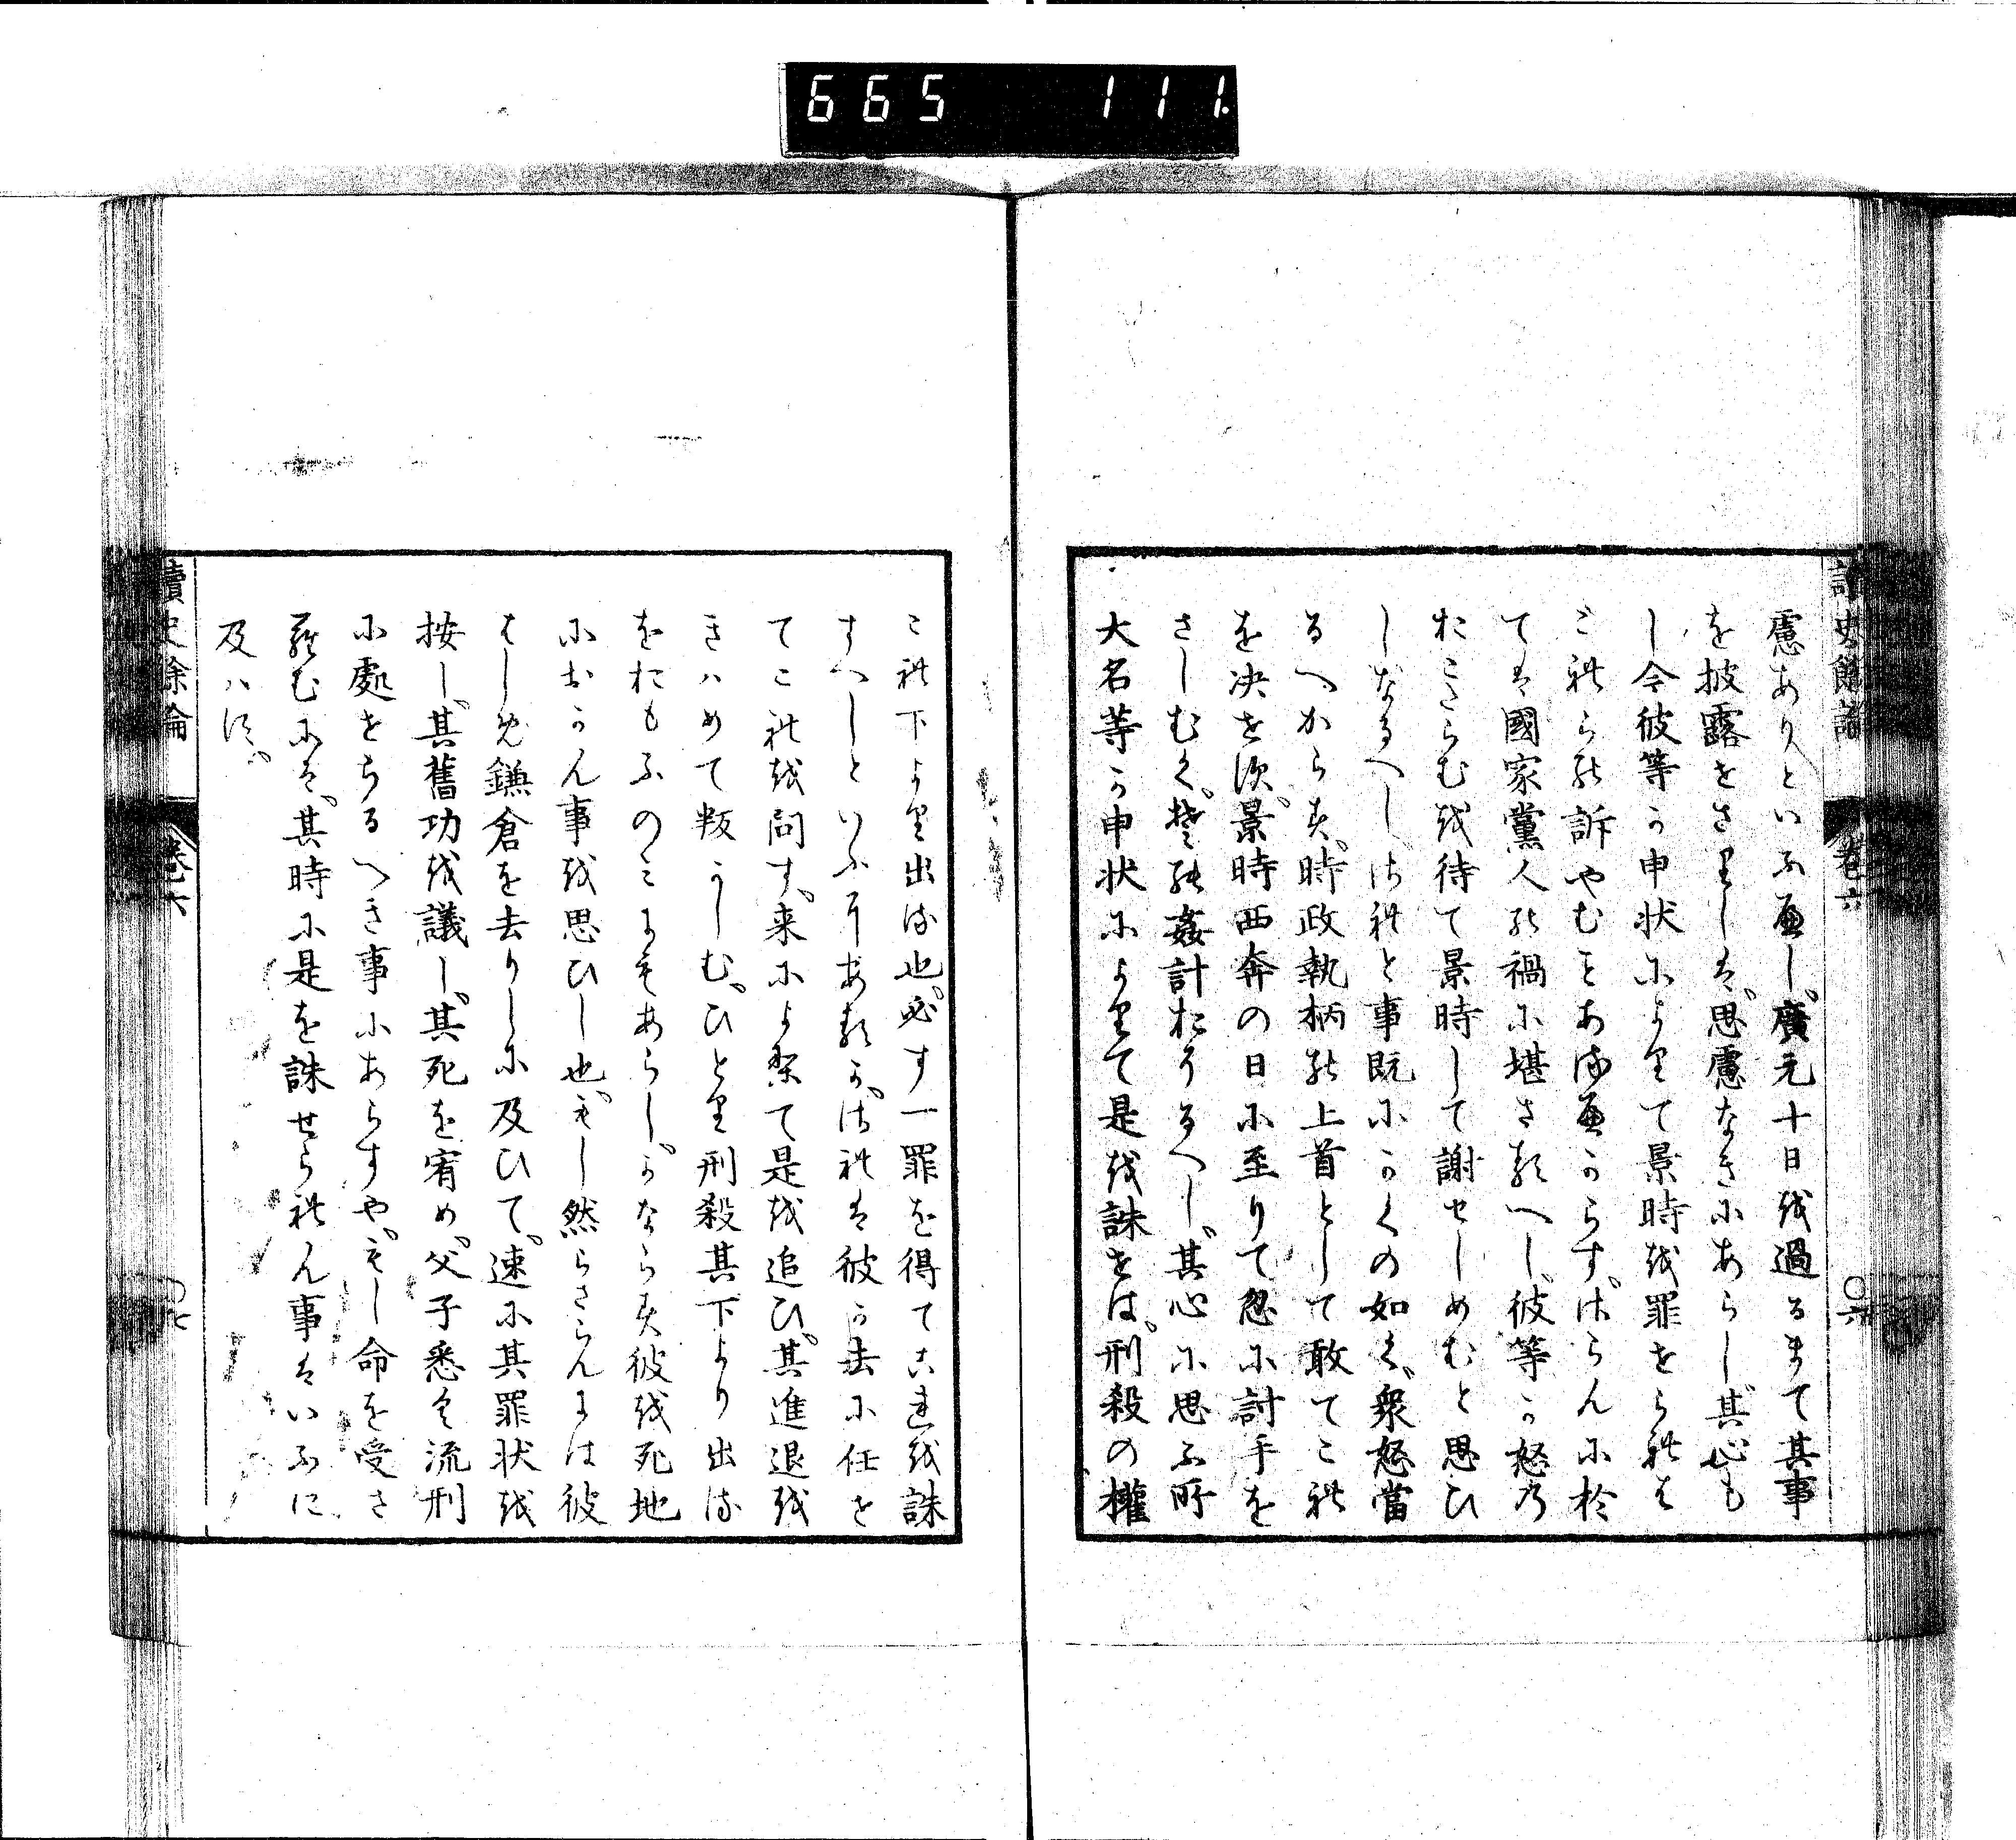 665 111.
讀史餘論 卷六 ○六
慮ありといふ色し廣元十日越過るまて其事
を披露せさりしは思慮なきにあらし其心も
し今彼等の申状によりて景時越罪せられは
これら能訴やむことあるへからすさらんに於
ては國家黨人能禍に堪さるへし彼等の怒乃
おこさらむ越待て景時して謝せしめむと思ひ
しなるへしされと事既にかくの如く衆怒當
るへからす時政執柄能上首として敢てこれ
を决せす景時西奔の日に至りて忽に討手を
さしむく楚能姦計おそるへし其心に思ふ所
大名等の申状によりて是越誅せは刑殺の權
これ下より出る也必す一罪を得てこれ越誅
すへしといふにあるかされは彼の去に任せ
てこれ越問す来によりて是越追ひ其進退越
きはめて叛かしむひとり刑殺其下より出る
をおもふのみにもあらしかならす彼越死地
におかん事越思ひし也もし然らさらんには彼
はしめ鎌倉を去りしに及ひて速に其罪状越
按し其舊功越議し其死を宥め父子悉く流刑
に處せらるへき事にあらすやもし命を受さ
らむには其時に是を誅せられん事はいふに
及はす
讀史餘論 卷六 ○七